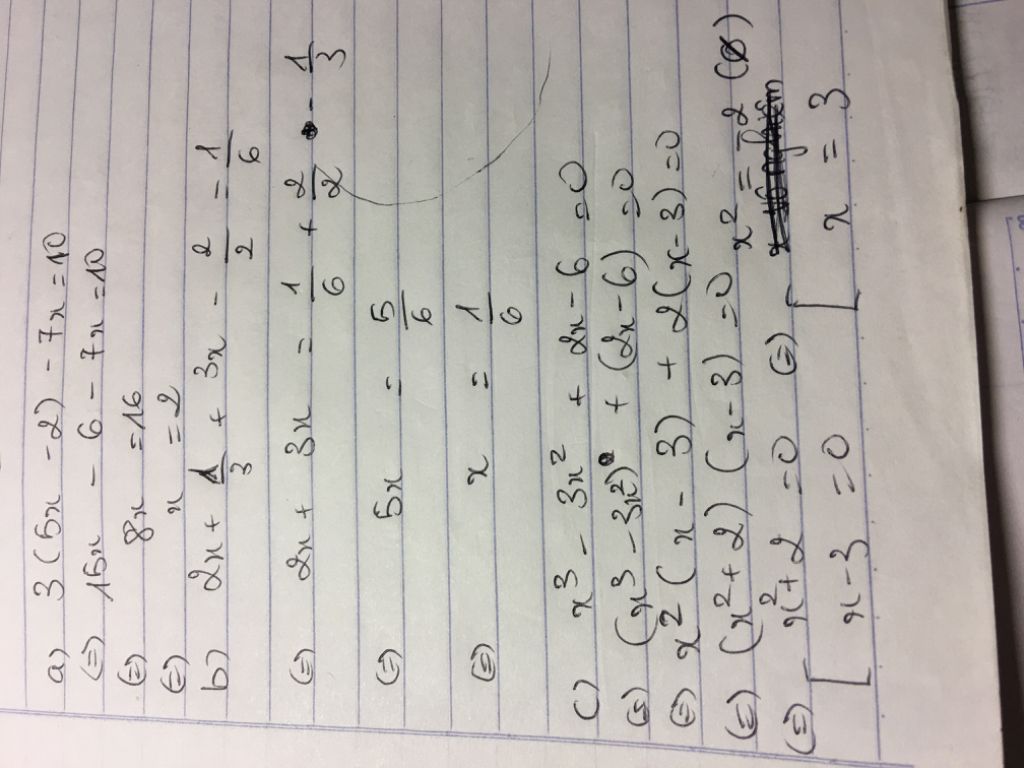 a) 3(5x - 2) - 7x = 10
(=) 15x - 6 - 7x = 10
(=) 8x = 16
(=) x = 2
b) 2x + 1/3 + 3x - 2/2 = 1/6
(=) 2x + 3x = 1/6 + 2/2 - 1/3
(=) 5x = 5/6
(=) x = 1/6
c) x³ - 3x² + 2x - 6 = 0
(=) (x³ - 3x²) + (2x - 6) = 0
(=) x²(x - 3) + 2(x - 3) = 0
(=) (x² + 2)(x - 3) = 0
(=) [ x² + 2 = 0 (=) [ x² = -2 (Ø)
[ x - 3 = 0 [ x = 3